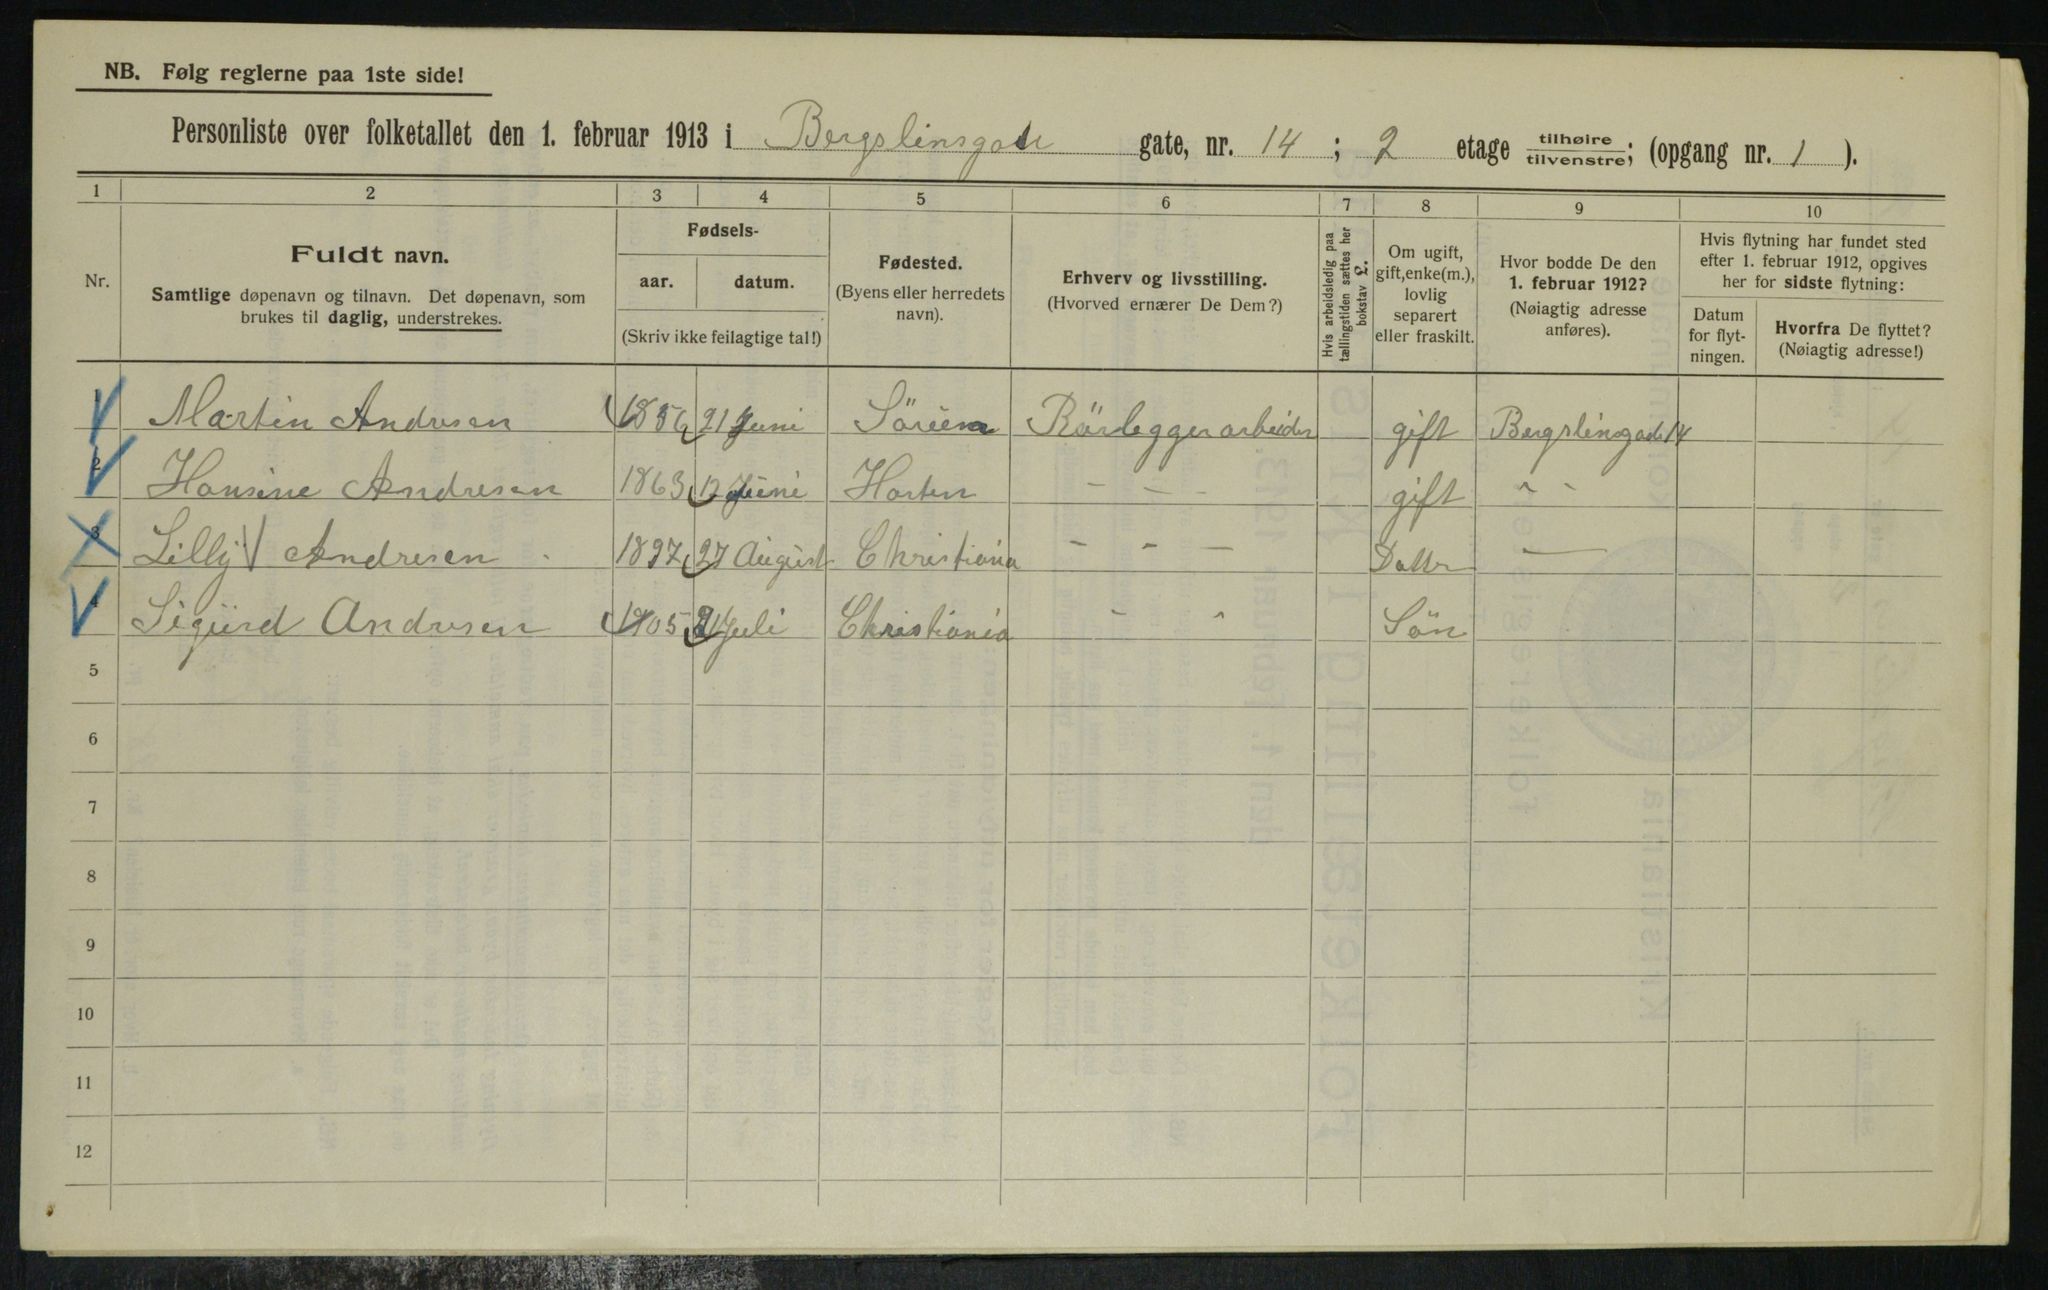 NB. Følg reglerne paa 1ste side!
Personliste over folketallet den 1. februar 1913 i Bergslinsgade gate, nr. 14 ; 2 etage tilhøire / tilvenstre; (opgang nr. 1 ).
1 2 3 4 5 6 7 8 9 10
Nr.
Fuldt navn.
Samtlige døpenavn og tilnavn. Det døpenavn, som
brukes til daglig, understrekes.
Fødsels-
aar. datum.
(Skriv ikke feilagtige tal!)
Fødested.
(Byens eller herredets
navn).
Erhverv og livsstilling.
(Hvorved ernærer De Dem?)
Hvis arbeidsledig paa
tællingstiden sættes her
bokstav L.
Om ugift,
gift, enke(m.),
lovlig
separert
eller fraskilt.
Hvor bodde De den
1. februar 1912?
(Nøiagtig adresse
anføres).
Hvis flytning har fundet sted
efter 1. februar 1912, opgives
her for sidste flytning:
Datum
for flyt-
ningen.
Hvorfra De flyttet?
(Nøiagtig adresse!)
1 Martin Andresen 1856 21 Juni Rörleggerarbeider gift Bergslinsgade 14
2 Hansine Andresen 1863 12 Juni Horten - - - gift " -
3 Lilly Andresen 1897 27 August Christiania - - - Datter —
4 Sigurd Andresen 1905 21 Juli Christiania - " Sön
5
6
7
8
9
10
11
12